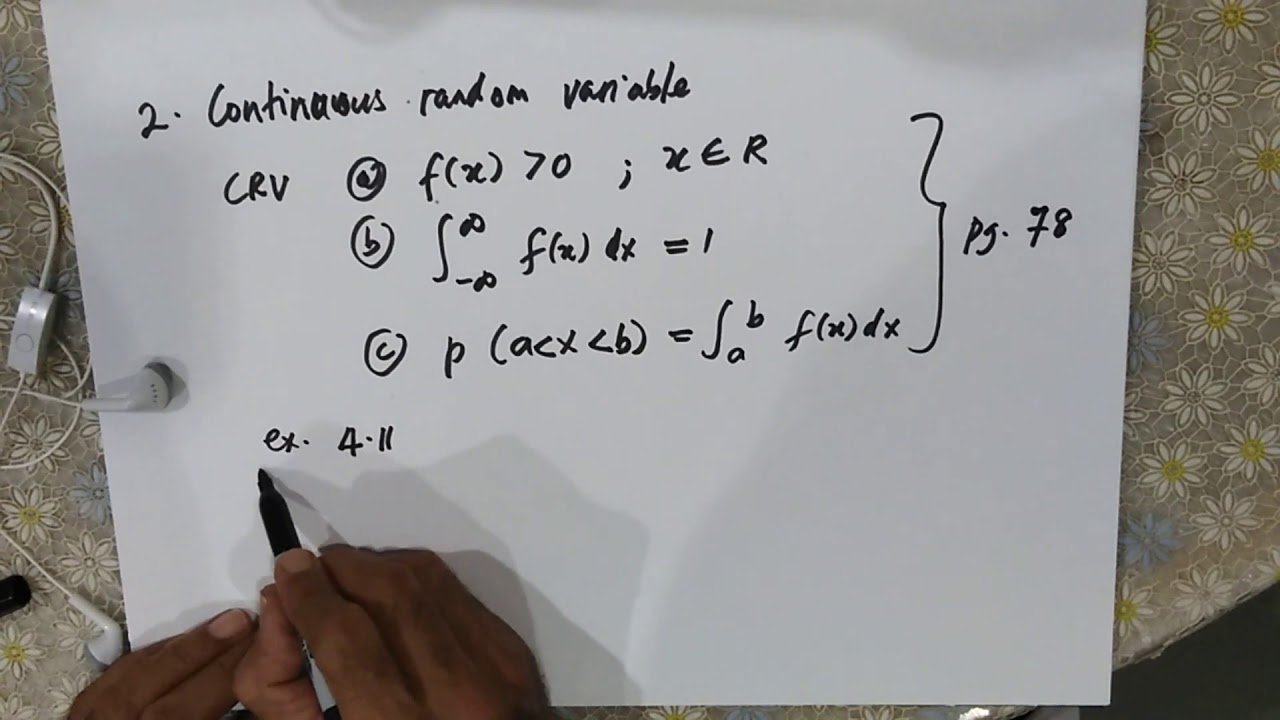 2. Continuous random variable
CRV (a) f(x) > 0 ; x ∈ R
(b) ∫_{-∞}^{∞} f(x) dx = 1
(c) p (a<x<b) = ∫_a^b f(x) dx
pg. 78
ex. 4.11